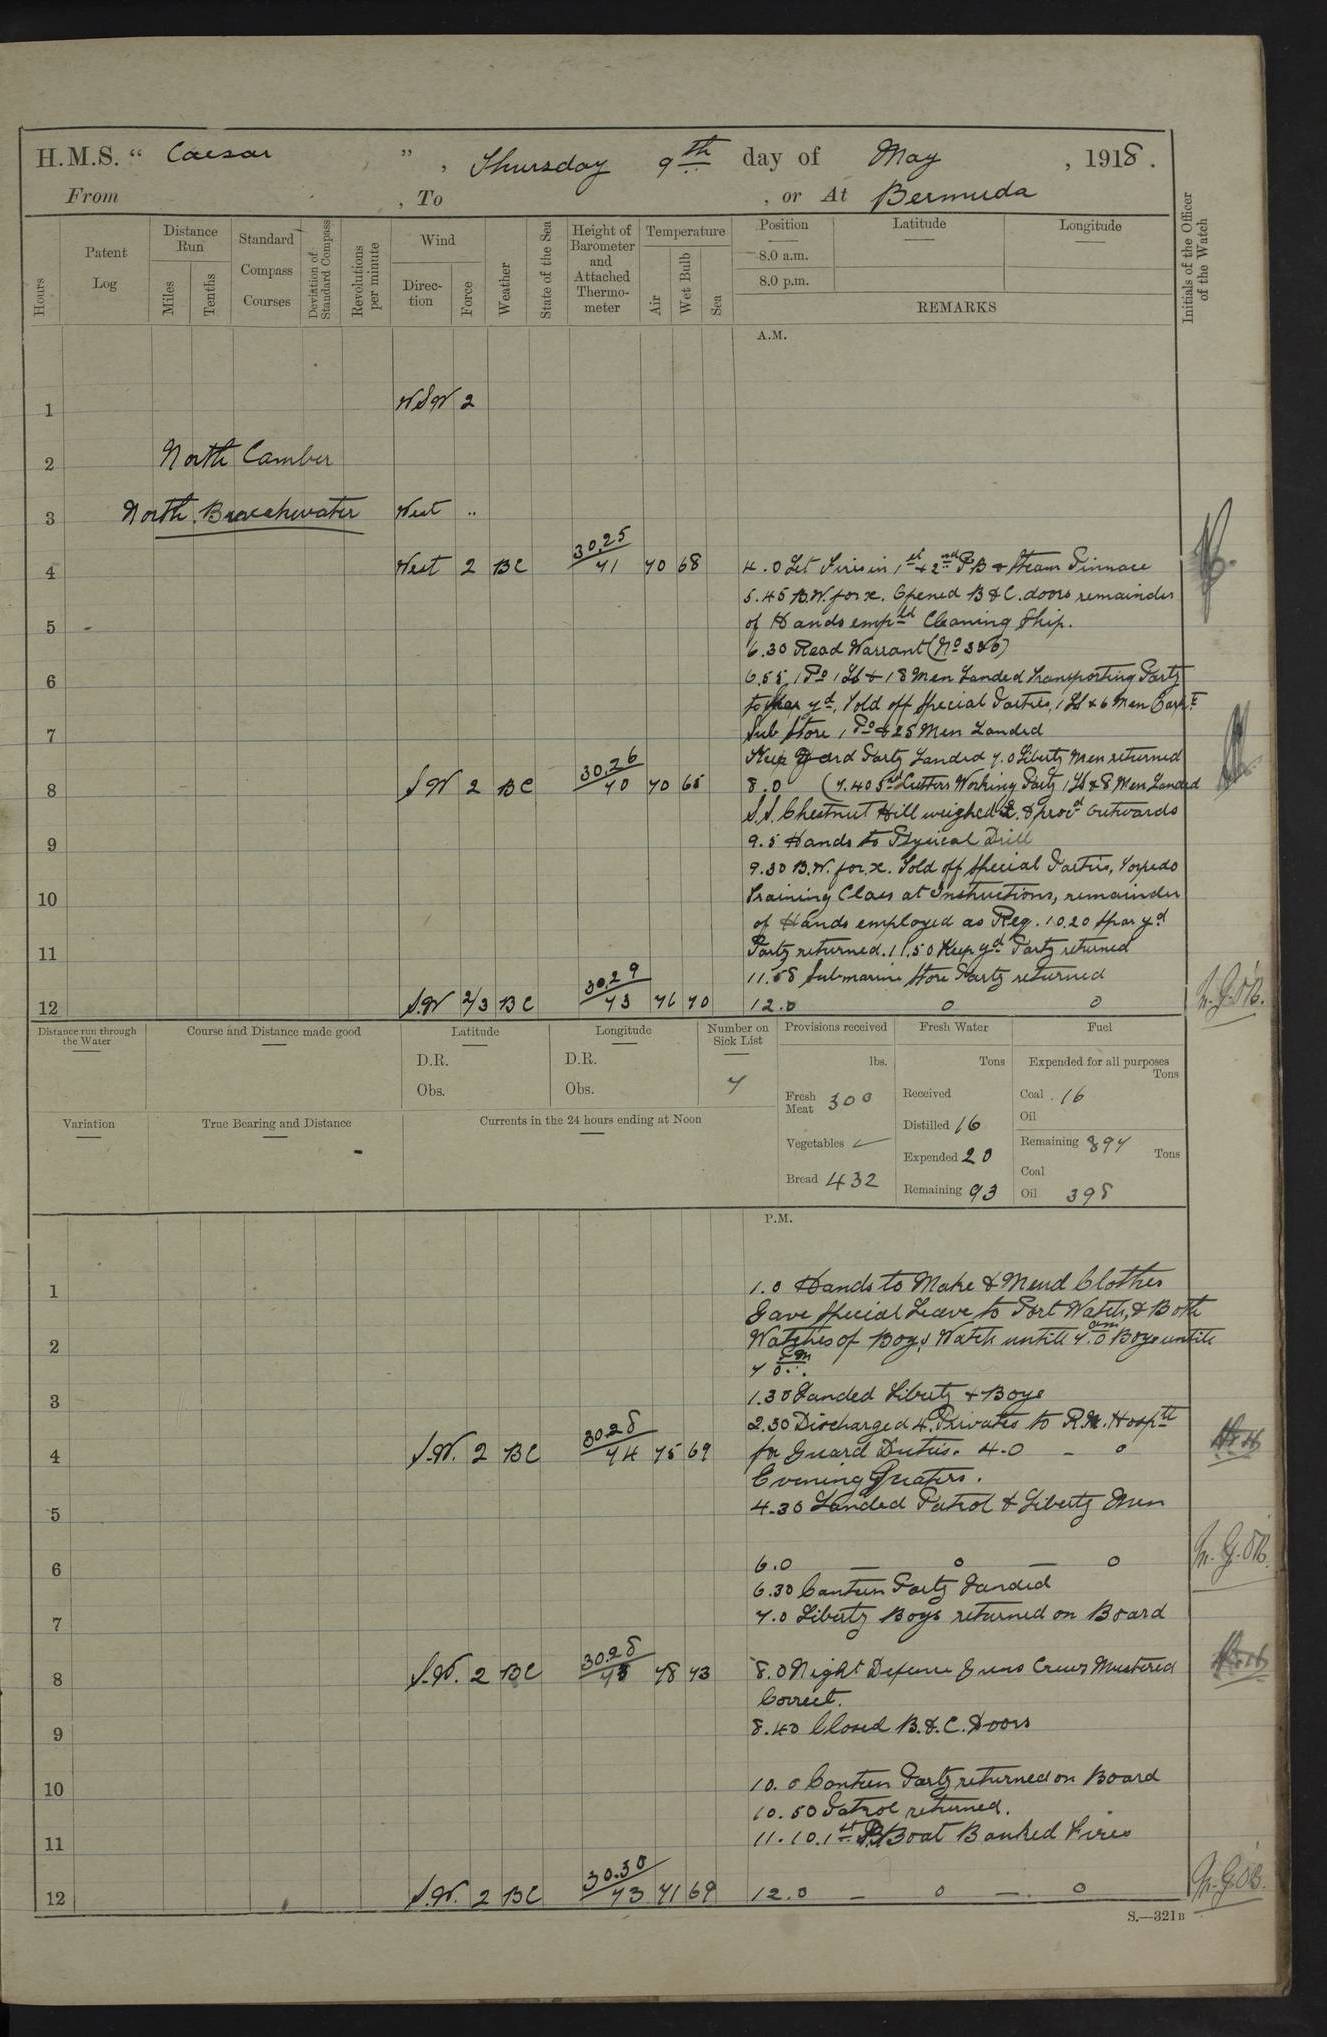 H.M.S. " Caesar " , Thursday 9th day of May , 1918 .
From , To , or At Bermuda
Hours
Patent Log
Distance Run
Miles
Tenths
Standard Compass Courses
Deviation of Standard Compass
Revolutions per minute
Wind
Direction
Force
Weather
State of the Sea
Height of Barometer and Attached Thermometer
Temperature
Air
Wet Bulb
Sea
Position
8.0 a.m.
8.0 p.m.
Latitude
Longitude
REMARKS
Initials of the Officer of the Watch
A.M.
1 WSW 2
2 North Camber
3 North Breakwater West ..
4 West 2 BC 30.25 71 70 68 4.0 Let Fires in 1st & 2nd P.B & Steam Pinnace
5.45 B.W. for x. Opened B & C. doors remainder
5 of Hands empld Cleaning Ship.
6.30 Read Warrant (No 386)
6 6.55 1 Po 1 LS & 18 Men Landed Transporting Party
to Spar yd. Told off Special Parties, 1 LS & 6 Men
7 Sub Store 1 Po & 25 Men Landed
Keep Yard Party Landed 7.0 Liberty Men returned
8 SW 2 BC 30.26 70 70 65 8.0 (7.40 Cutters Working Party 1 LS & 8 Men Landed
S.S. Chestnut Hill weighed & procd outwards
9 9.5 Hands to Physical Drill
9.30 B.W. for x. Told off Special Parties, Torpedo
10 Training Class at Instructions, remainder
of Hands employed as Req. 10.20 Spar yd
11 Party returned. 11.50 Keep yd Party returned
11.58 Submarine Store Party returned
12 S.W 2/3 BC 30.29 73 76 70 12.0 o o
Distance run through the Water
Course and Distance made good
Latitude
D.R.
Obs.
Longitude
D.R.
Obs.
Number on Sick List
7
Provisions received
lbs.
Fresh Meat 300
Vegetables
Bread 432
Fresh Water
Tons
Received
Distilled 16
Expended 20
Remaining 93
Fuel
Expended for all purposes
Tons
Coal . 16
Oil
Remaining 897 Tons
Coal
Oil 398
Variation
True Bearing and Distance
Currents in the 24 hours ending at Noon
P.M.
1 1.0 Hands to Make & Mend Clothes
Gave Special Leave to Port Watch, & Both
2 Watches of Boys, Watch untill 7.0 am Boys untill
7 0 pm.
3 1.30 Landed Liberty & Boys
2.30 Discharged 4 Privates to R.N. Hosptl
4 S.W. 2 BC 30.28 74 75 69 for Guard Duties. 4.0 – o
Evening Quaters.
5 4.30 Landed Patrol & Liberty Men
6 6.0 — o — o
6.30 Canteen Party Landed
7 7.0 Liberty Boys returned on Board
8 S.W. 2 BC 30.28 75 78 73 8.0 Night Defence Guns Crews Mustered
Correct.
9 8.40 Closed B. & C. Doors
10 10.0 Canteen Party returned on Board
10.50 Patrol returned.
11 11.10. 1st P. Boat Banked Fires
12 S.W. 2 BC 30.30 73 71 69 12.0 – o – o
S.—321B